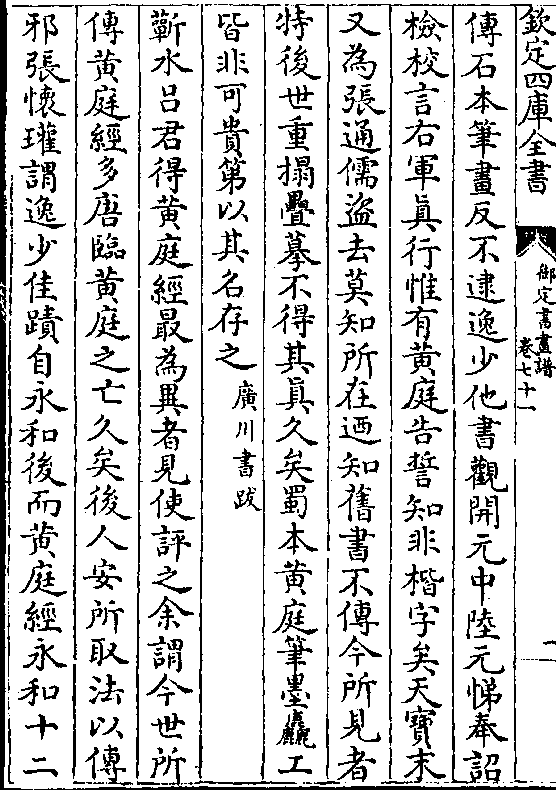 欽定四庫全書
御定書畫譜
卷七十一
傳石本筆畫反不逮逸少他書觀開元中陸元悌奉詔
檢校言右軍真行惟有黄庭告誓知非楷字矣天寶末
又為張通儒盗去莫知所在迺知舊書不傳今所見者
特後世重搨疊摹不得其真久矣蜀本黄庭筆墨麤工
皆非可貴第以其名存之廣川書跋
蘄水吕君得黄庭經最為異者見使評之余謂今世所
傳黄庭經多唐臨黄庭之亡久矣後人安所取法以傳
邪張懷瓘謂逸少佳蹟自永和後而黄庭經永和十二